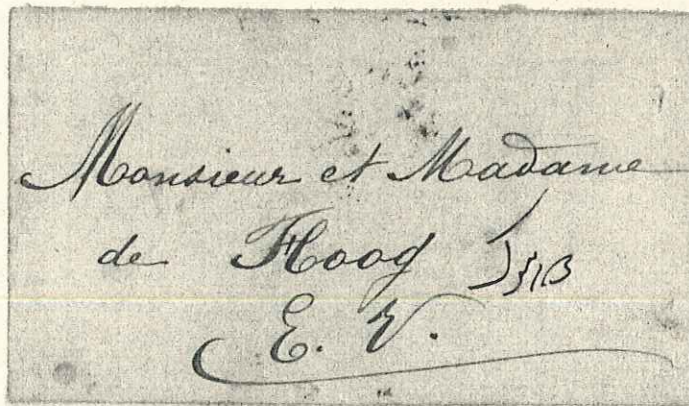 Monsieur et Madame
de Hoog
E. V.